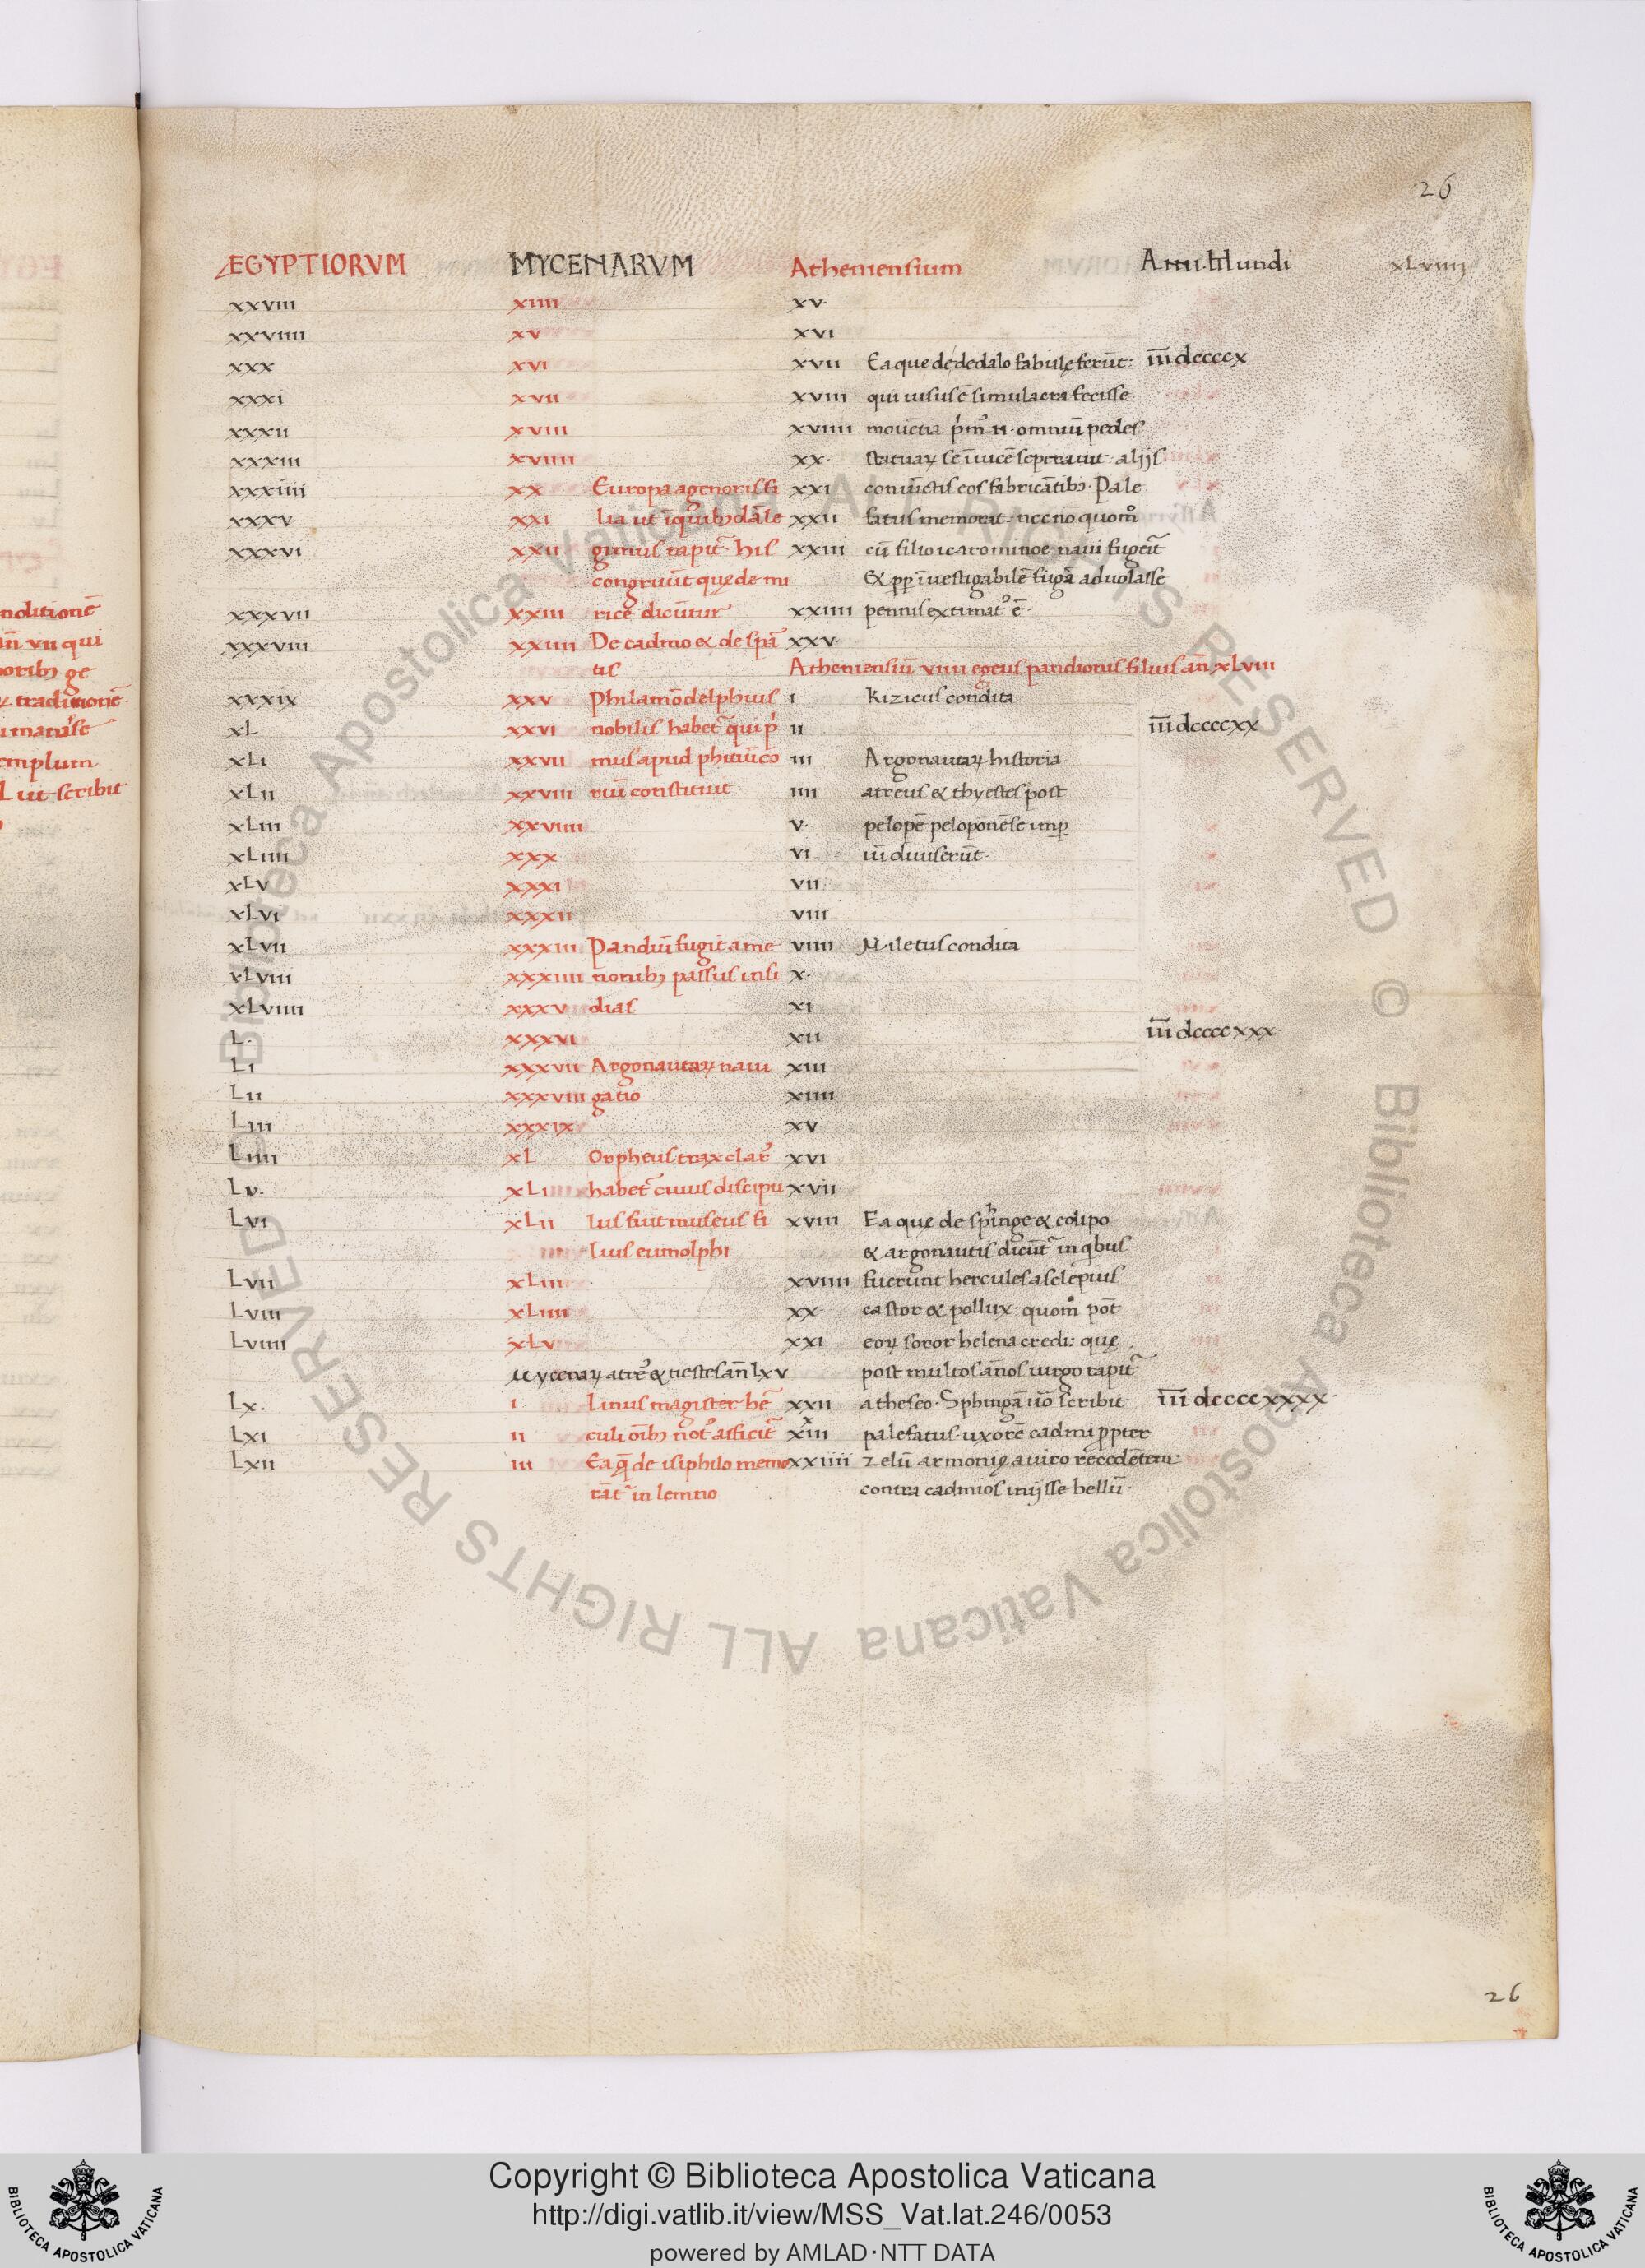 26
ÆGYPTIORVM MYCENARVM Atheniensium Anni Mundi xLviiij
xxviii xiiii xv
xxviiii xv xvi
xxx xvi xvii Ea que de dedalo fabulę ferūt: iii̅ dccccx
xxxi xvii xviii qui uisus ē simulacra fecisse
xxxii xviii xviiii mouētia omniū pedes
xxxiii xviiii xx statuaꝝ se īuicē seperauit aliis
xxxiiii xx Europa agenoris fi xxi coniūctis eos fabricātibꝫ. Pale
xxxv xxi lia ut ī quibꝫdā le xxii fatus memorat. nec nō quom̊
xxxvi xxii gimus rapit̄ his xxiii cū filio icaro minoe naui fugerit̄
congruūt quę de mi & ꝓꝑ īuestigabilē fugā aduolasse
xxxvii xxiii rice dicūtur xxiiii pennis extimat᷒ ē.
xxxviii xxiiii De cadmo & de spā xxv
tis Atheniensiū viiii egeus pandionis filius an̄ xLviii
xxxix xxv Philamō delphius i Kizicus condita
xL xxvi nobilis habet̄ qui p̍ ii iii̅ dccccxx
xLi xxvii mus apud phitiū co iii Argonautaꝝ historia
xLii xxviii riū constituit iiii atreus & thyestes post
xLiii xxviiii v pelopē peloponēse imꝑ
xLiiii xxx vi iū diuiserūt.
xLv xxxi vii
xLvi xxxii viii
xLvii xxxiii Pandiū fugit a me viiii Miletus condita
xLviii xxxiiii tionibꝫ passus insi x
xLviiii xxxv dias xi
L xxxvi xii iii̅ dccccxxx
Li xxxvii Argonautaꝝ naui xiii
Lii xxxviii gatio xiiii
Liii xxxix xv
Liiii xL Orpheus trax clar᷒ xvi
Lv. xLi habet̄ cuius discipu xvii
Lvi xLii lus fuit museus fi xviii Ea quę de sphinge & edipo
lius eumolphi & argonautis dicūt̄ in qbus
Lvii xLiii xviiii fuerunt hercules asclepius
Lviii xLiiii xx castor & pollux: quom̊ pōt
Lviiii xLv xxi eoꝝ soror helena credi: quę
Mycenaꝝ atre᷒ & tiestes an̄ lxv post multos annos uirgo rapit̄
Lx. i Linus magister he xxii a theseo. Sphingā uo̅ scribit iii̅ dccccxxxx.
Lxi ii culi oībꝫ not᷒ afficit̄ xxiii palefatus. uxorē cadmi ꝓpter
Lxii iii Ea q̄ de isiphile memo xxiiii zelū armonię a uiro recedētem
rāt̄ in lemno contra cadmios inijsse bellū.
26
nditionē
in̄ vii qui
oribꝫ ge
traditionē
manase
emplum
L ut scribit
Copyright © Biblioteca Apostolica Vaticana
http://digi.vatlib.it/view/MSS_Vat.lat.246/0053
powered by AMLAD·NTT DATA
BIBLIOTECA APOSTOLICA VATICANA
BIBLIOTECA APOSTOLICA VATICANA
© Biblioteca Apostolica Vaticana ALL RIGHTS RESERVED
© Biblioteca Apostolica Vaticana ALL RIGHTS RESERVED